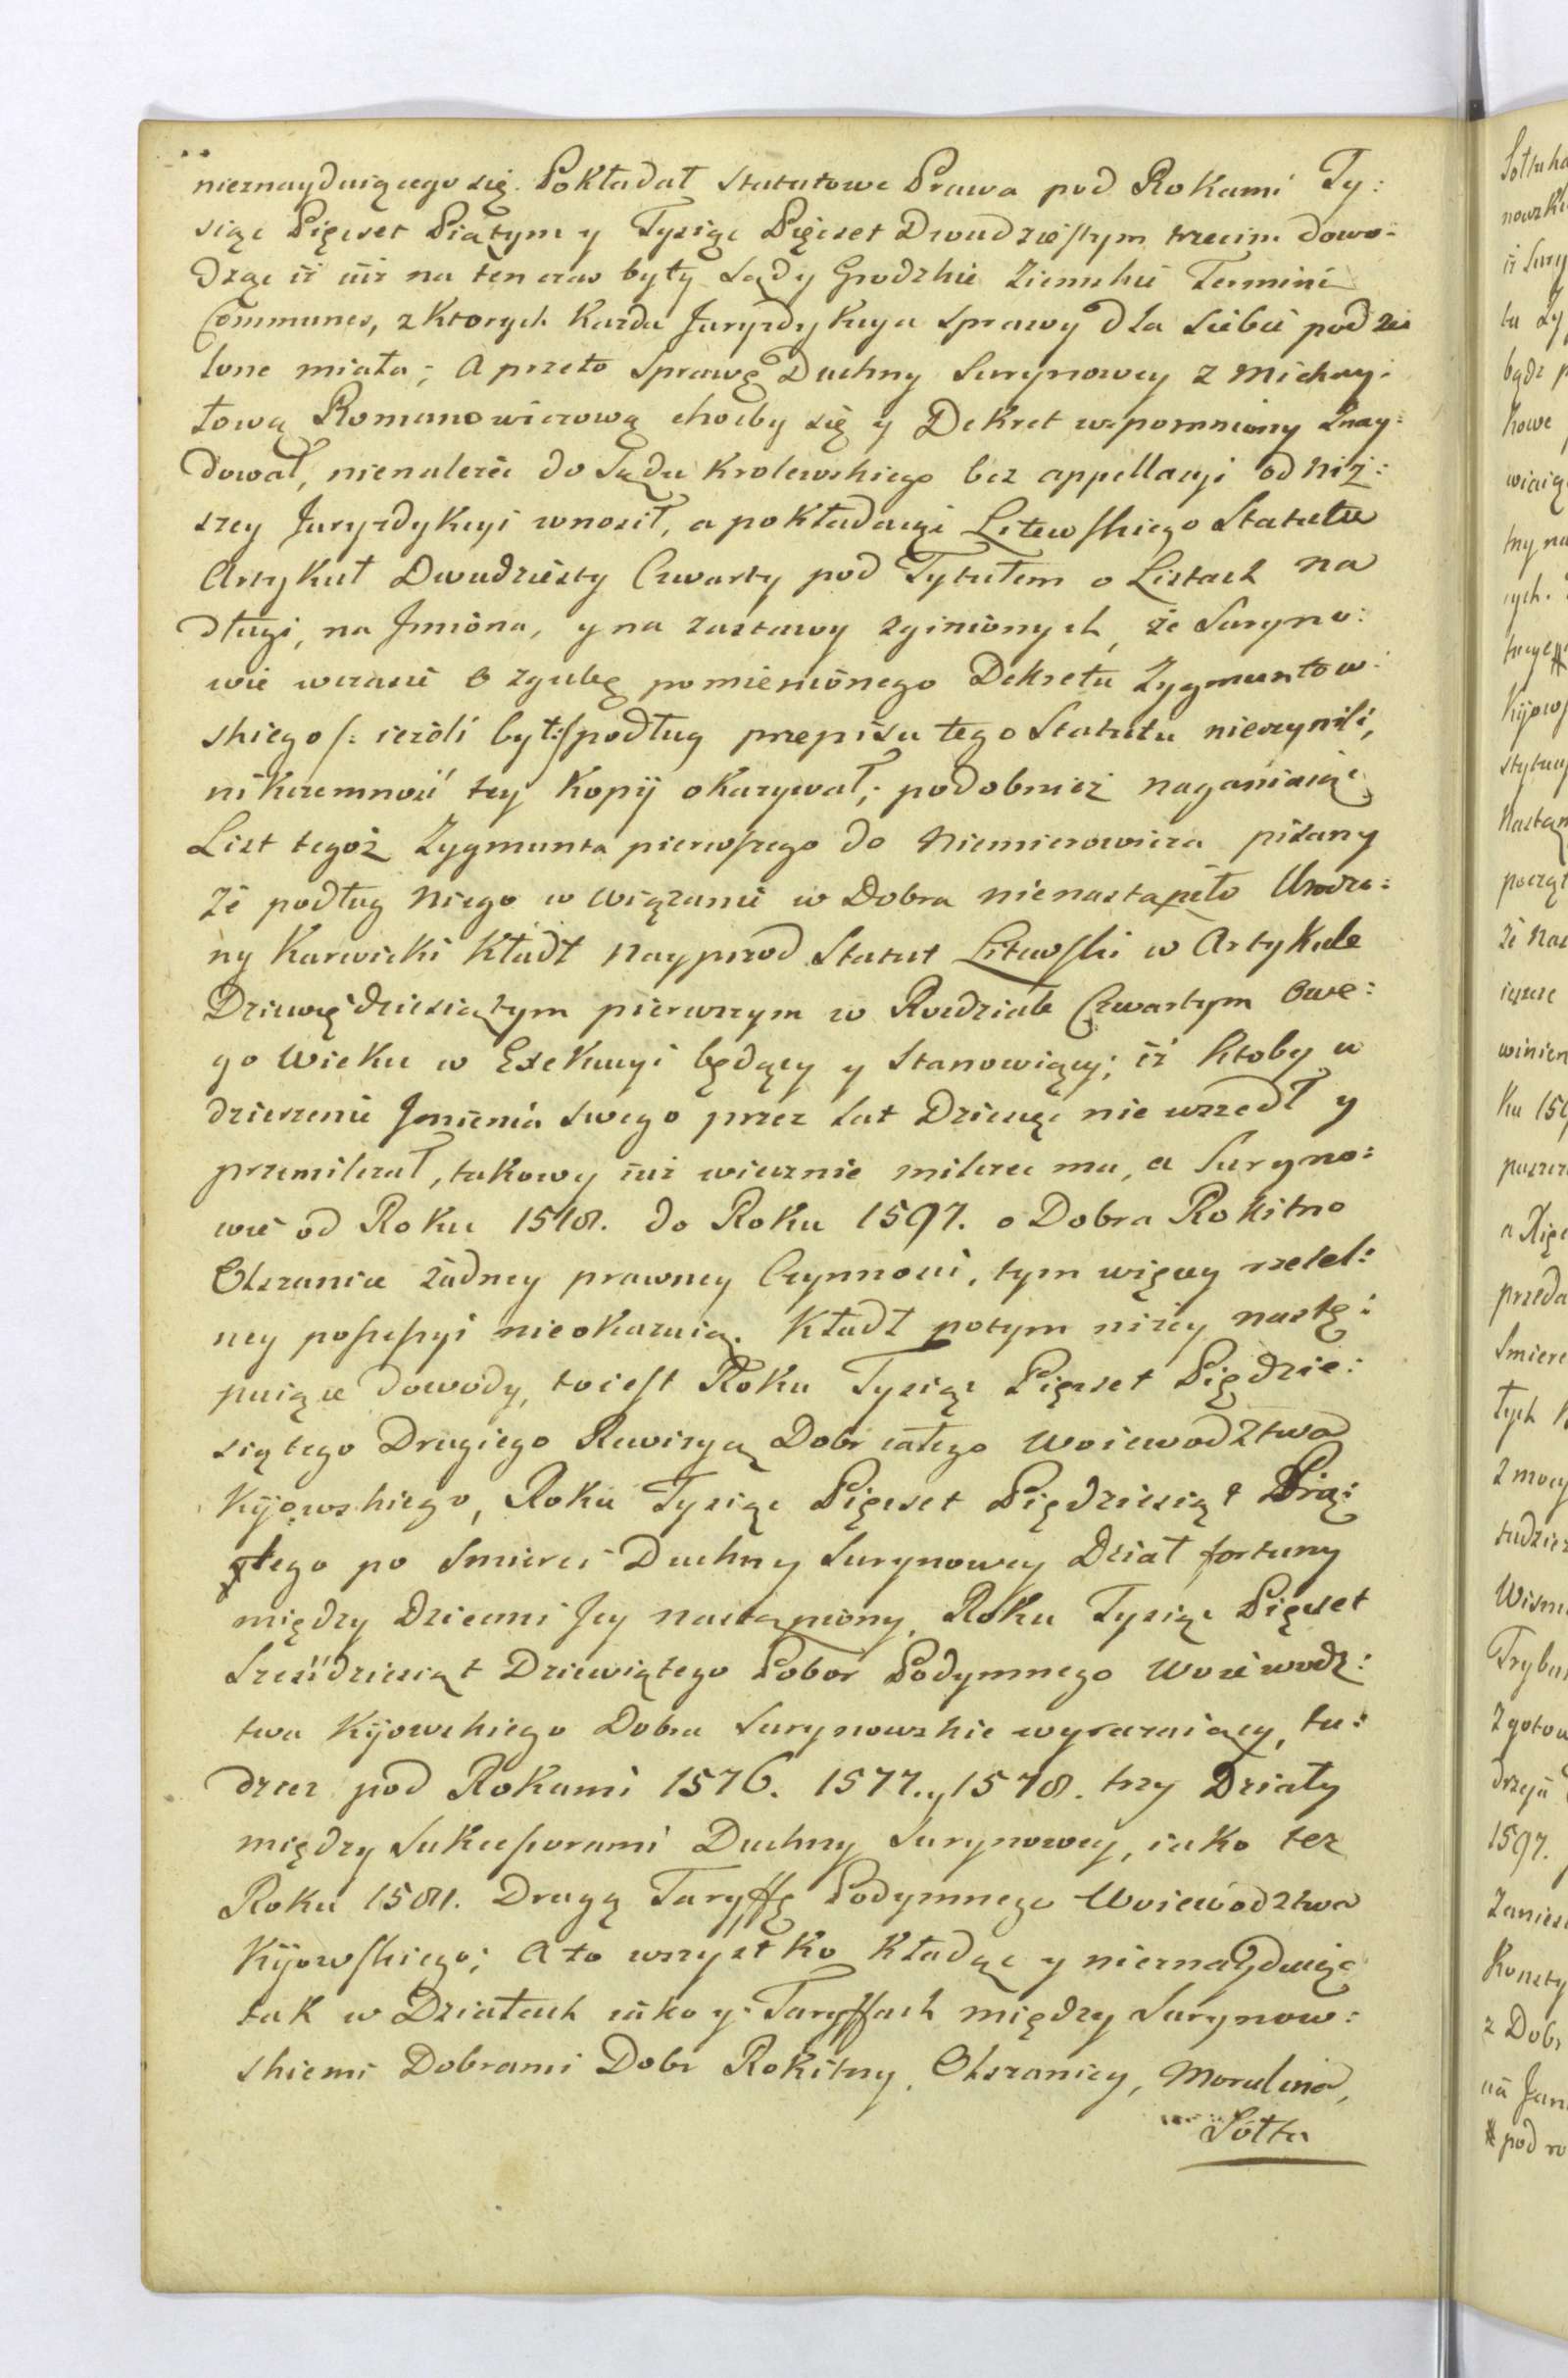 nieznayduiącego się. Pokładał Statutowe Prawa pod Rokami Ty:
siąc Pięcset Piątym y Tysiąc Pięcset Dwudziestym trzecim dowo:
dząc iż iuż na ten czas były Sądy Grodzkie Ziemskie Termini
Communes, z Ktorych Każda Juryzdykcya Sprawy dla Siebie podzie
lone miała; A przeto Sprawę Duchny Surynowey z Michay:
łową Romanowiczową choćby się y Dekret wspomniony Znay:
dował, nienależeć do Sądu Krolewskiego bez appellacyi od niż:
szey Juryzdykcyi wnosił, a pokładaiąc Litewskiego Statutu
Artykuł Dwudziesty Czwarty pod Tytułem o Listach na
długi, na Jmiona, y na zastawy zginionych, że Suryno:
wie wczasie o zgubę pomienionego Dekretu Zygmuntow:
skiego /: ieżeli był :/ podług przepisu tego Statutu nieczynili,
nikczemność tey Kopij okazywał; podobnież naganiaiąc
List tegoż Zygmunta pierwszego do Niemierowicza pisany
że podług niego w wiązanie w Dobra nienastąpiło Urodzo:
ny Karwicki Kładł nayprzod Statut Litewski w Artykule
Dziewiędziesiątym pierwszym w Rozdziale Czwartym owe:
go wieku w Exekucyi będący y Stanowiący; iż Ktoby w
dzierzenie Jmienia Swego przez Lat Dziesięć nie wszedł y
przemilczał, takowy iuż wiecznie milczeć ma, a Suryno:
wie od Roku 1518. do Roku 1597. o Dobra Rokitno
Olszanice żadney prawney Czynności, tym więcey rzetel:
ney possessyi nieokazuią. Kładł potym niżey nastę:
puiące dowody, toiest Roku Tysiąc Pięcset Piędzie:
siątego Drugiego Rewizyą Dobr całego Woiewodztwa
Kijowskiego, Roku Tysiąc Pięcset Piędziesiąt Pią:
tego po Smierci Duchny Surynowey Dział fortuny
między Dziecmi Jey nastąpiony, Roku Tysiąc Pięcset
Sześćdziesiąt Dziewiątego Pobor Podymnego Woiewodz:
twa Kijowskiego Dobra Surynowskie wyrażaiący, tu:
dzież pod Rokami 1576. 1577. y 1578. trzy Działy
między Sukcessorami Duchny Surynowey, iako też
Roku 1581. Drugą Taryffę Podymnego Woiewodztwa
Kijowskiego; A to wszystko Kładąc y nieznayduiąc
tak w Działach iako y Taryffach między Surynow:
skiemi Dobrami Dobr Rokitny, Olszanicy,
Sołtu